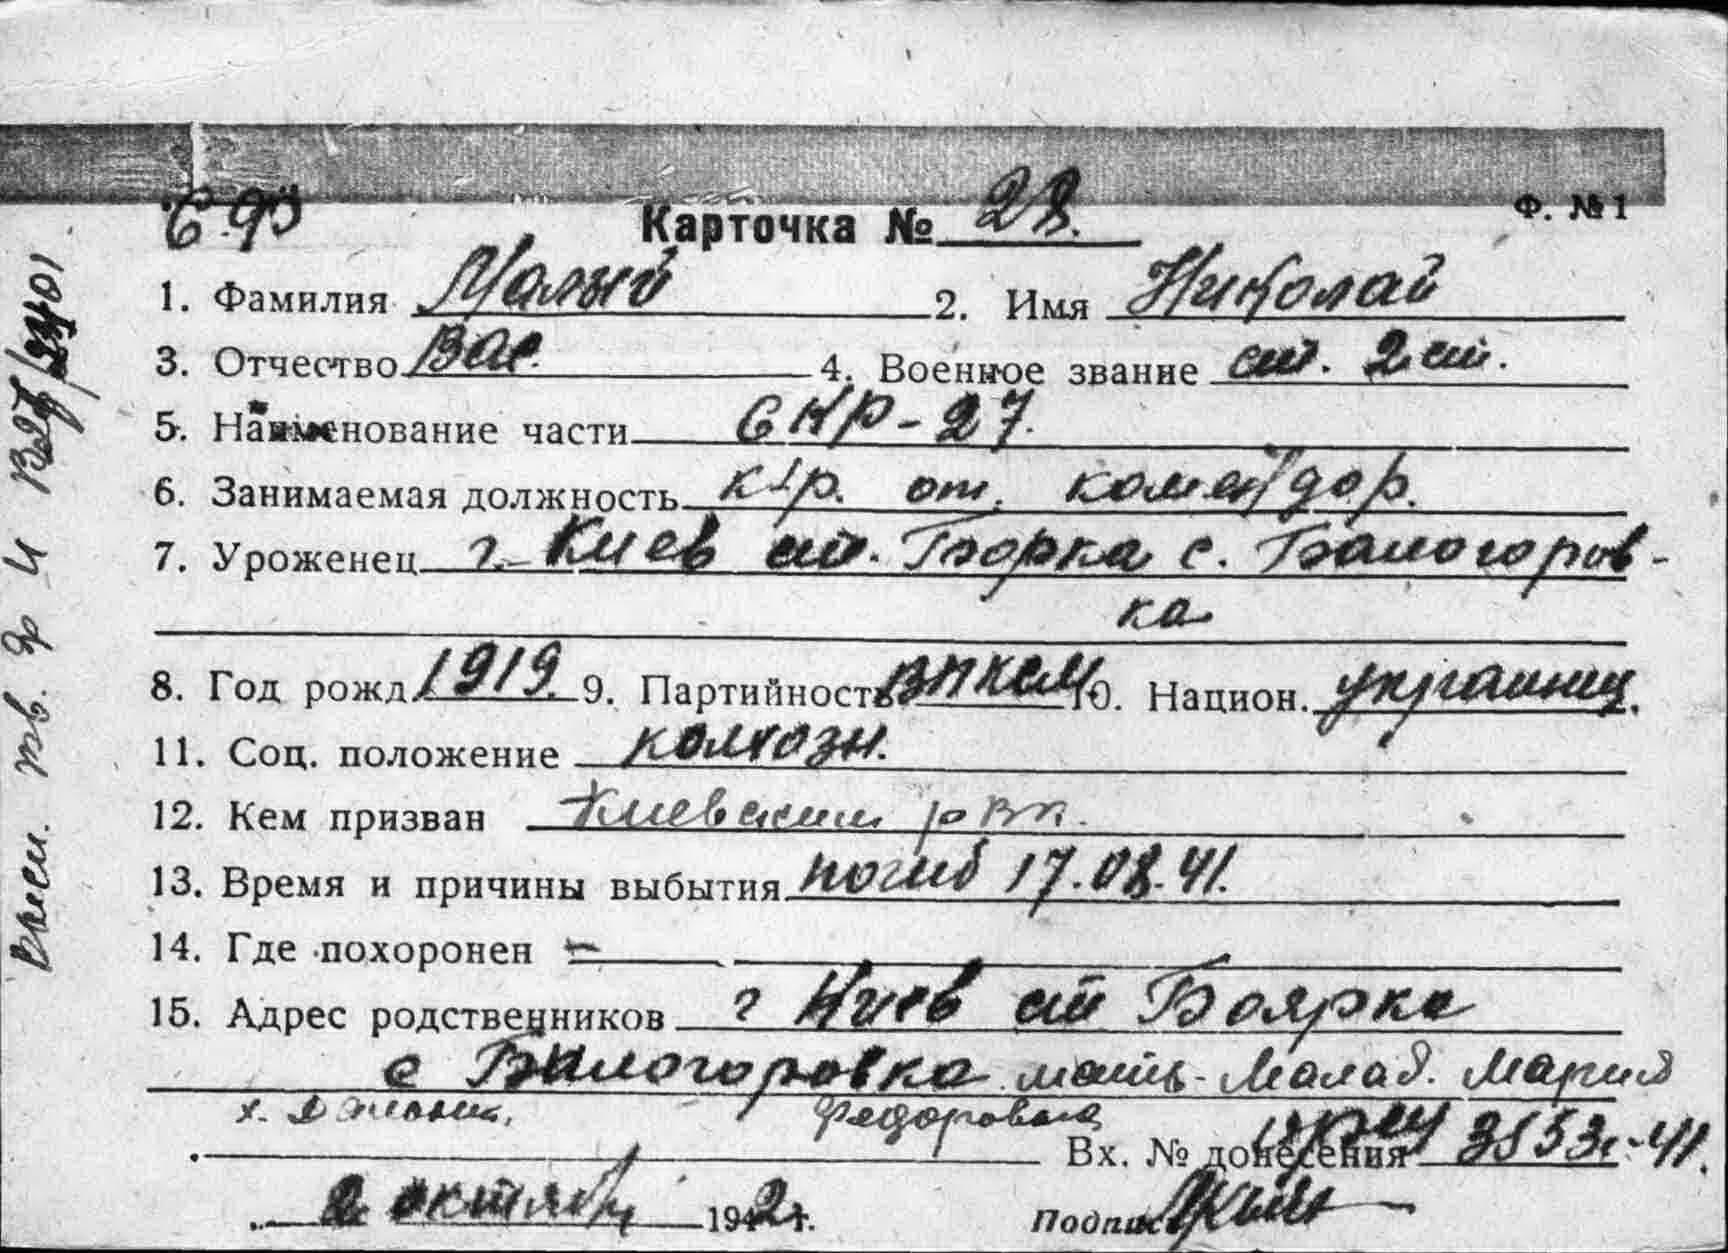 С.Ф
Карточка № 28.
Ф. № 1
1. Фамилия Малый 2. Имя Николай
3. Отчество Вас. 4. Военное звание ст. 2 ст.
5. Наименование части СКР-27.
6. Занимаемая должность к-р. от. комендор.
7. Уроженец г. Киев ст. Борка с. Балогоров-
ка
8. Год рожд. 1919. 9. Партийность ВЛКСМ 10. Национ. украинец.
11. Соц. положение колхозн.
12. Кем призван Киевским рвк.
13. Время и причины выбытия погиб 17.08.41.
14. Где похоронен –
15. Адрес родственников г Киев ст Боярка
с Балогоровка мать - Малая. Мария
х. Федоровна
Вх. № донесения 3553с-41.
2 октября 1942 г.
Подпись